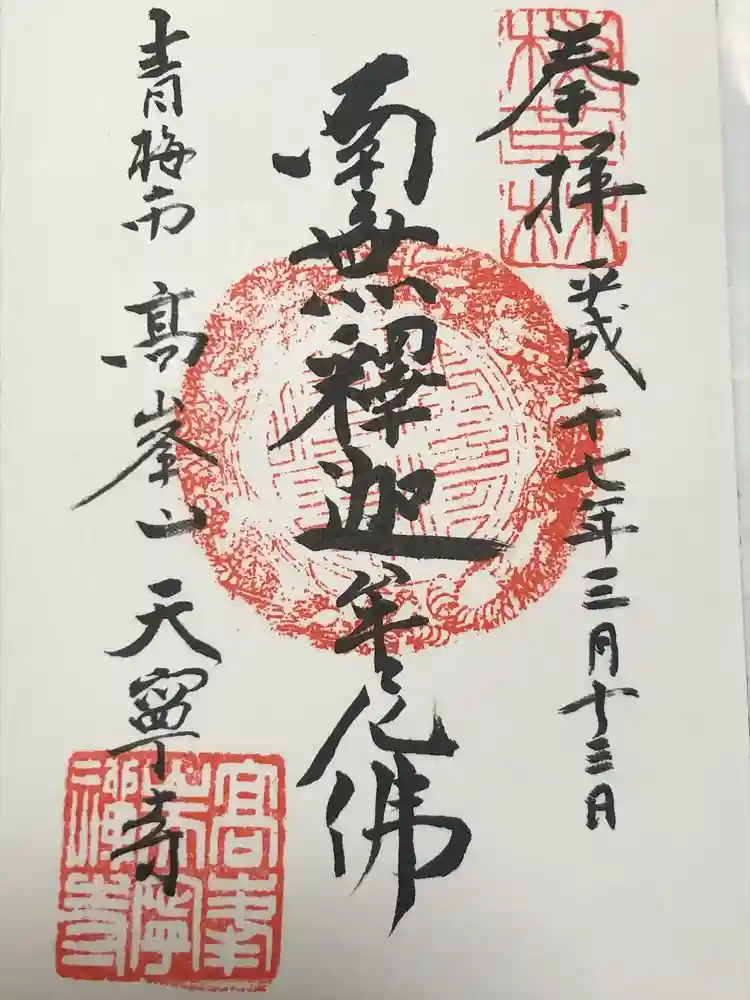 奉拝
平成二十七年三月十三日
南無釋迦牟尼佛
青梅市 高峯山 天寧寺